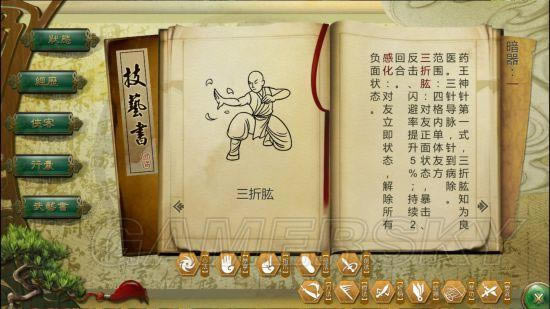 狀態
經歷
俠客
行囊
技藝書
技藝書
三折肱
暗器:一
药王神针第一式，三折肱知为良
医。三针导脉，针到病除。
范围：四格内单体友方
三折肱：对友正面状态，暴击、
反击、闪避率提升5%；持续2
回合。
感化：对友立即状态，解除所有
负面状态。
GAMERSKY